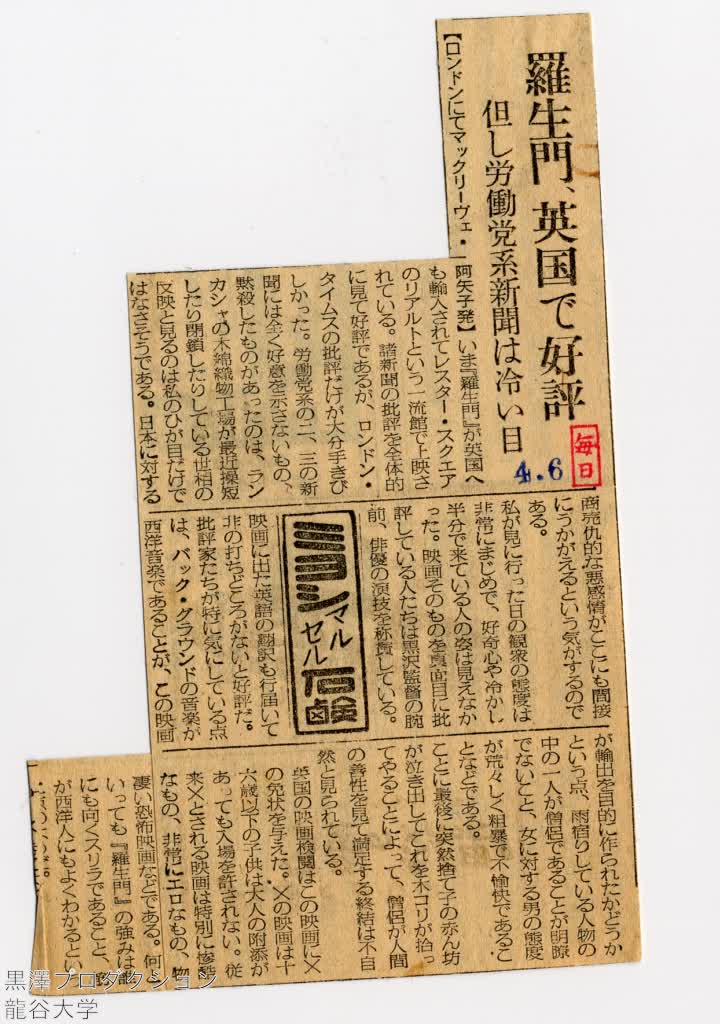 羅生門、英国で好評
但し労働党系新聞は冷い目
毎日
4.6
【ロンドンにてマックリーヴェ・
阿矢子発】いま『羅生門』が英国へ
も輸入されてレスター・スクエア
のリアルトという一流館で上映さ
れている。諸新聞の批評を全体的
に見て好評であるが、ロンドン・
タイムスの批評だけが大分手きび
しかった。労働党系の二、三の新
聞には全く好意を示さないもの、
黙殺したものがあったのは、ラン
カシャの木綿織物工場が最近操短
したり閉鎖したりしている世相の
反映と見るのは私のひが目だけで
はなさそうである。日本に対する
商売仇的な悪感情がここにも間接
にうかがえるという気がするので
ある。
私が見に行った日の観衆の態度は
非常にまじめで、好奇心や冷かし
半分で来ている人の姿は見えなか
った。映画そのものを真面目に批
評している人たちは黒沢監督の腕
前、俳優の演技を称賛している。
ミヨシ
マルセル
石鹸
映画に出た英語の翻訳も行届いて
非の打ちどころがないと好評だ。
批評家たちが特に気にしている点
は、バック・グラウンドの音楽が
西洋音楽であることが、この映画
が輸出を目的に作られたかどうか
という点、雨宿りしている人物の
中の一人が僧侶であることが明瞭
でないこと、女に対する男の態度
が荒々しく粗暴で不愉快であるこ
となどである。
ことに最後に突然捨て子の赤ん坊
が泣き出してこれを木コリが拾っ
てやることによって、僧侶が人間
の善性を見て満足する終結は不自
然と見られている。
英国の映画検閲はこの映画に×
の免状を与えた。×の映画は十
六歳以下の子供は大人の附添が
あっても入場を許されない。従
来×とされる映画は特別に惨酷
なもの、非常にエロなもの、物
凄い恐怖映画などである。何と
いっても『羅生門』の強みは誰
にも向くスリラであること、
が西洋人にもよくわかるとい
黒澤プロダクション
龍谷大学